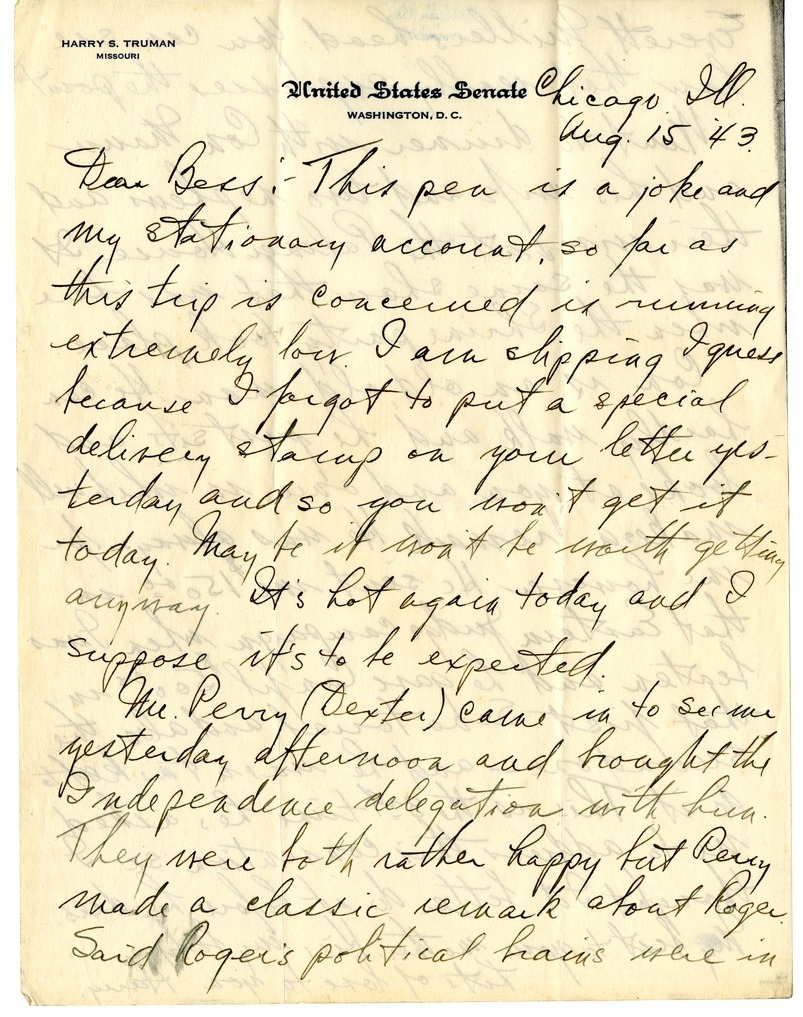 HARRY S. TRUMAN
MISSOURI
United States Senate
WASHINGTON, D. C.
Chicago, Ill.
Aug. 15 '43
Dear Bess:- This pen is a joke and
my stationary account, so far as
this trip is concerned is running
extremely low. I am slipping I guess
because I forgot to put a special
delivery stamp on your letter yes-
terday and so you won't get it
today. May be it won't be worth getting
anyway. It's hot again today and I
suppose it's to be expected.
Mr. Perry (Dexter) came in to see me
yesterday afternoon and brought the
Independence delegation with him.
They were both rather happy but Perry
made a classic remark about Roger.
Said Roger's political brains were in